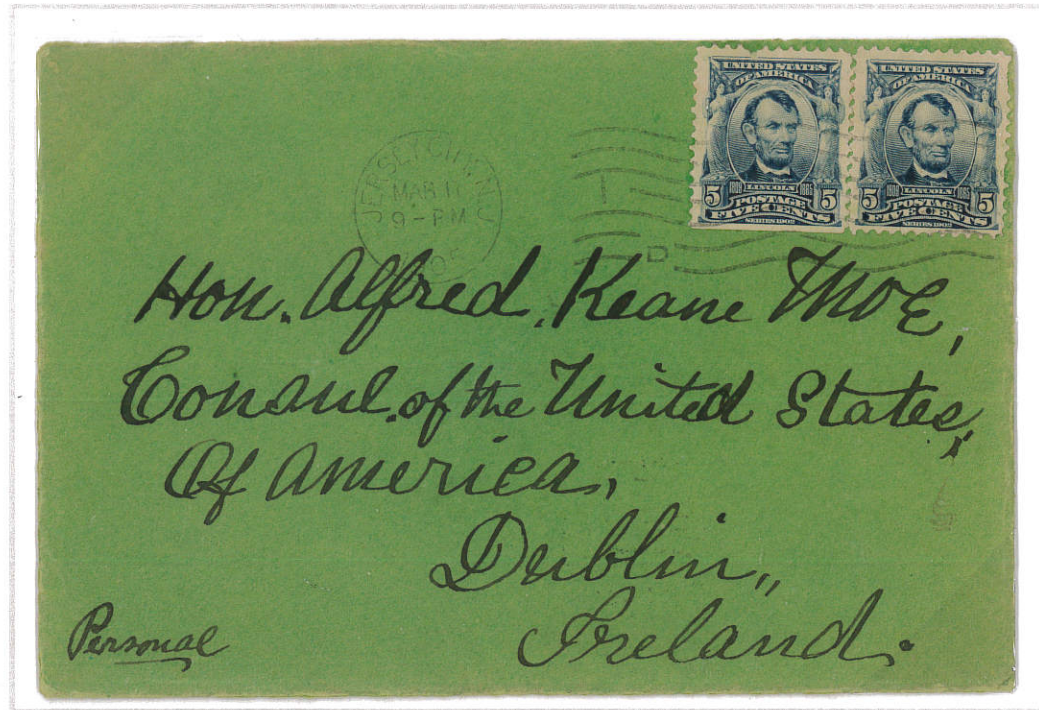 UNITED STATES OF AMERICA
5 1809 LINCOLN 1865 5
POSTAGE
FIVE CENTS
SERIES 1902
UNITED STATES OF AMERICA
5 1809 LINCOLN 1865 5
POSTAGE
FIVE CENTS
SERIES 1902
JERSEY CITY, N.J.
MAR 1
9-PM
D
Hon. Alfred, Keane Moe,
Consul of the United States,
Of America,
Dublin,,
Ireland.
Personal